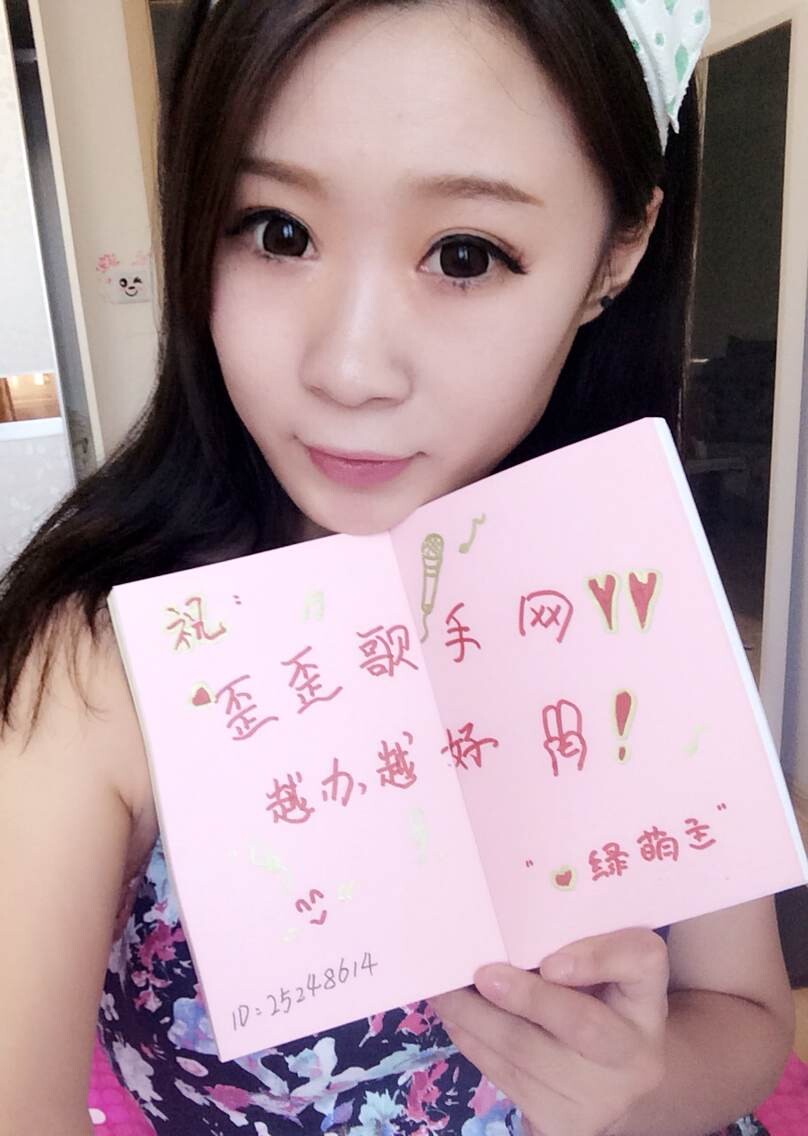 祝:
歪歪歌手网
越办越好!
"绿萌主"
ID:25248614